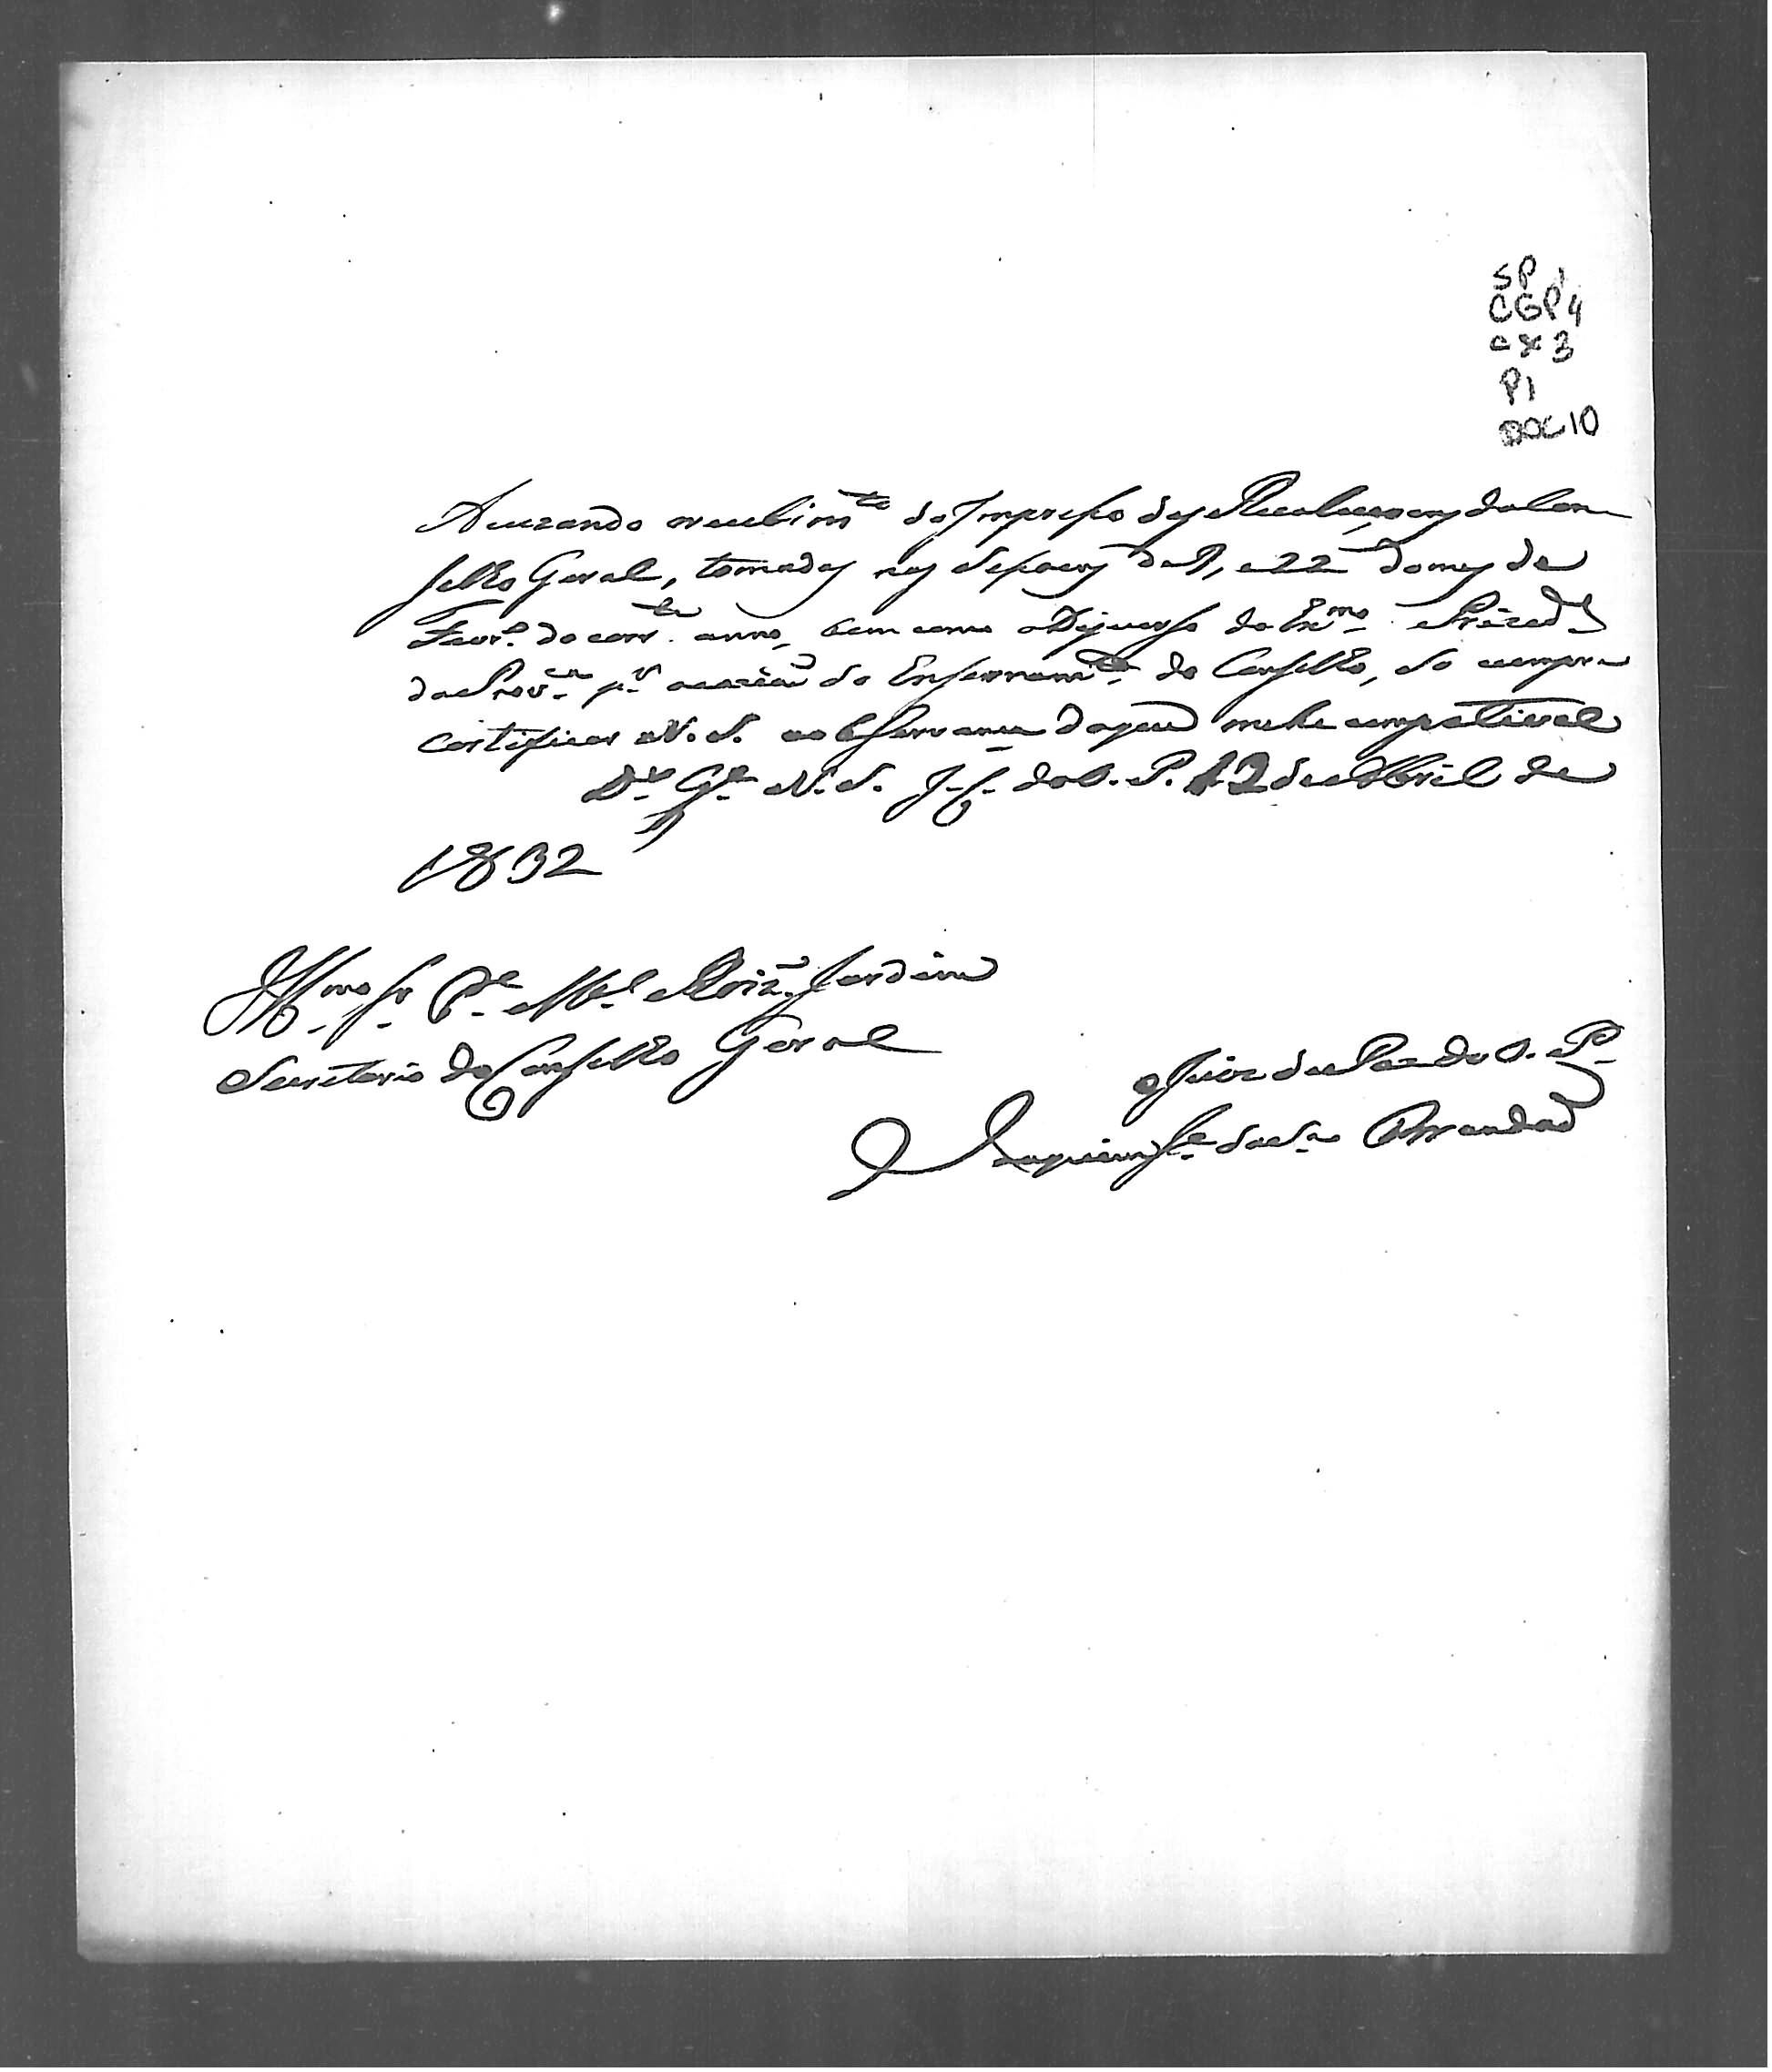 SP 1
CGP4
cx 3
P1
DOC 10
Acuzando orecebim.to do Impreso das Rezoluçoens do Con
selho Geral, tomadas nas Sesoens de 9, e 22 do mes de
Fevr.o do corr.te anno, bem como o Discurso do Ex.mo Prezid.e
da Prov.a p.r ocazião do Enserram.to do Conselho, So cumpre
certificar a V. S. a observancia daquelo me he compativel
D.s G.e V. S. da S. P. 12 de Abril de
1832
Ill.mo Sr. P.e M.el Roiz Jardim
Secretario do Conselho Geral
o Juiz de Paz da S. P.
Joaquim J.e da S.a Brandão